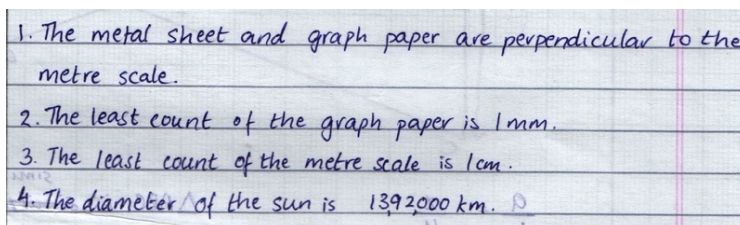 1. The metal sheet and graph paper are perpendicular to the
metre scale.
2. The least count of the graph paper is 1mm.
3. The least count of the metre scale is 1cm.
4. The diameter of the sun is 1392000 km.